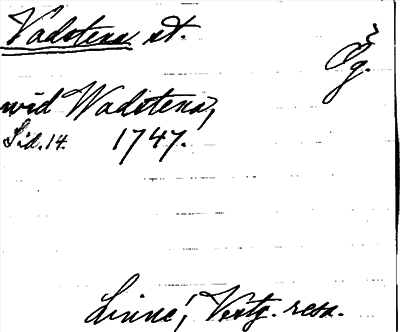 Vadstena st.
Ög.
wid Wadstena,
Sid. 14. 1747.
Linné, Vestg. resa.